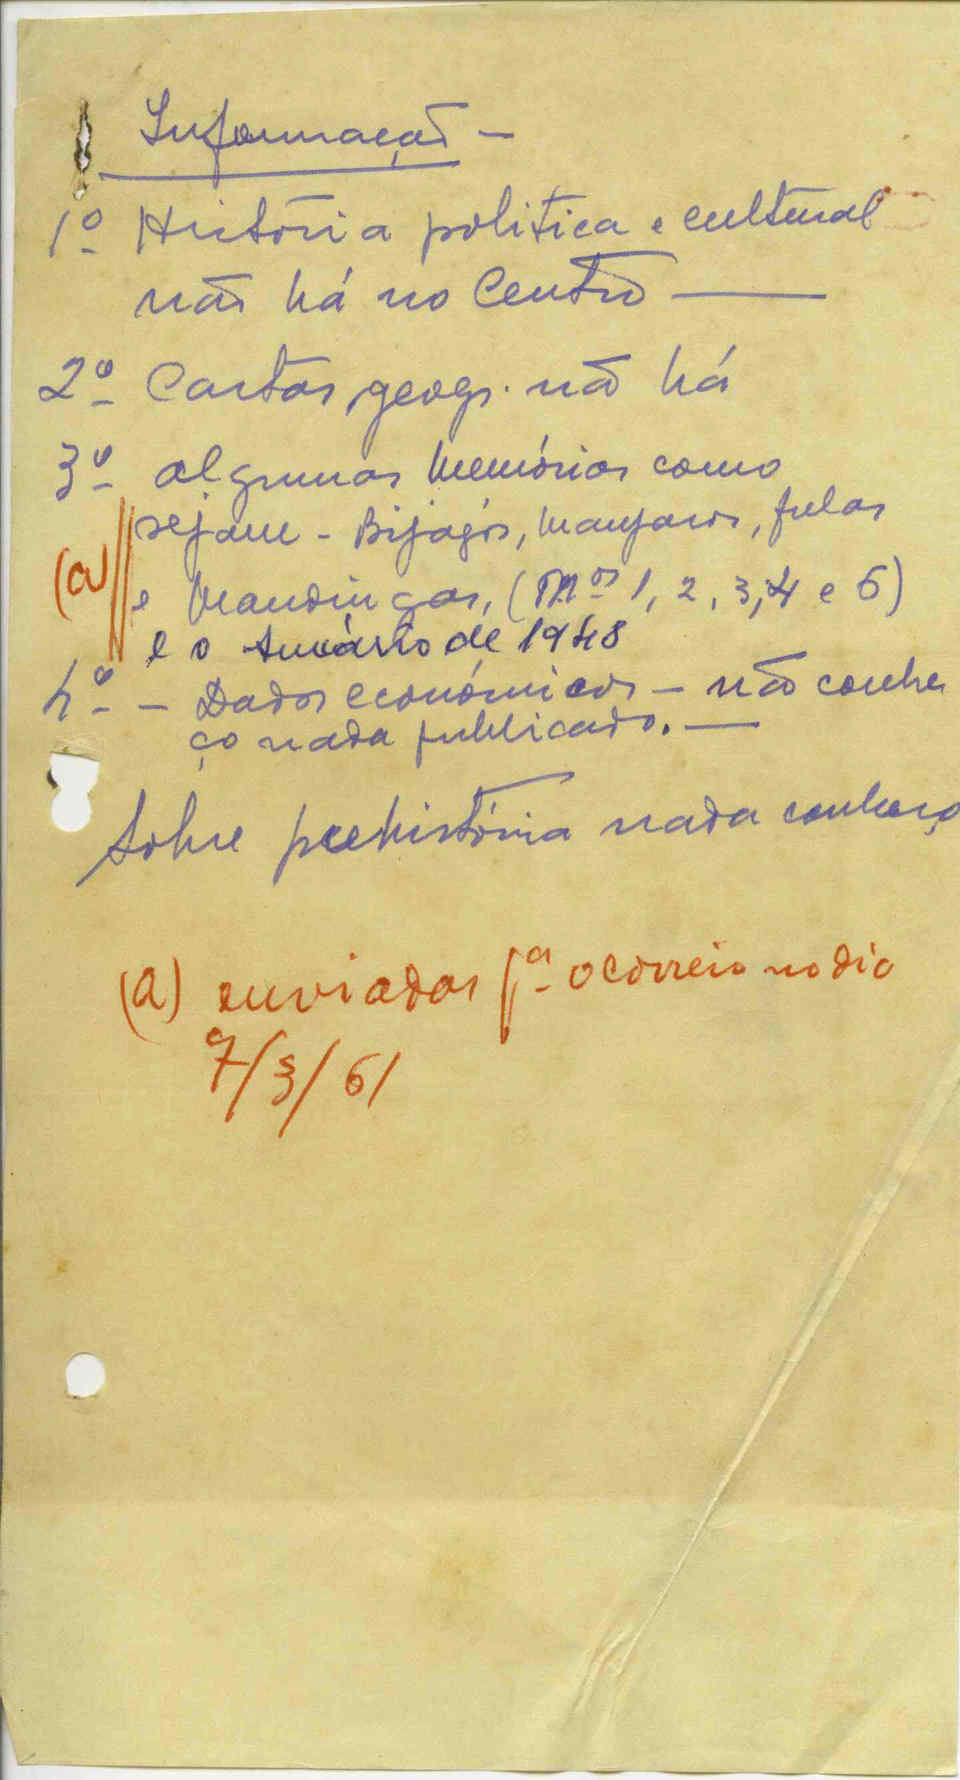 Informação -
1º História politica e cultural
não há no Centro —
2º Cartas geogr. não há
3º algumas Memórias como
sejam - Bijagós, Manjacos, fulas
(a) e Mandingas, (Nos 1, 2, 3, 4 e 6)
e o Anuário de 1948
4º - Dados económicos - não conhe
ço nada publicado. —
Sobre prehistória nada conheço
(a) enviadas pª o correio no dia
7/3/61